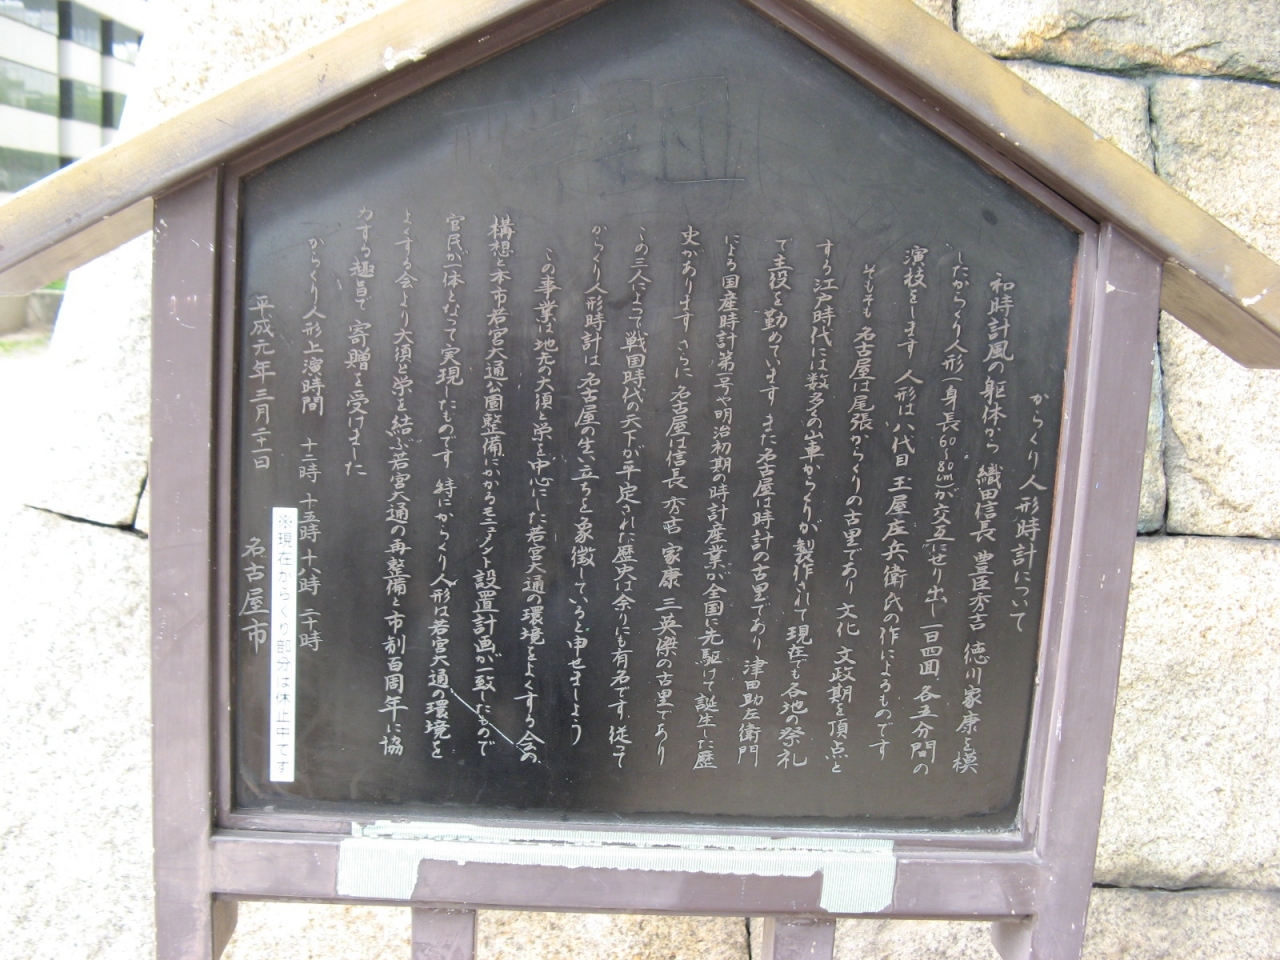 からくり人形時計について
和時計風の躯体から 織田信長 豊臣秀吉 徳川家康を模
したからくり人形(身長60〜80cm)が交互にせり出し一日四回 各五分間の
演技をします 人形は八代目 玉屋庄兵衛氏の作によるものです
そもそも 名古屋は尾張からくりの古里であり 文化 文政期を頂点と
する江戸時代には数多くの山車からくりが製作されて現在でも各地の祭礼
で主役を勤めています また名古屋は時計の古里であり 津田助左衛門
による国産時計第一号や明治初期の時計産業が全国に先駆けて誕生した歴
史があります さらに 名古屋は信長 秀吉 家康 三英傑の古里であり
この三人によって戦国時代の天下が平定された歴史は余りにも有名です 従って
からくり人形時計は 名古屋の生い立ちを象徴していると申せましょう
この事業は地元の大須と栄を中心にした若宮大通の環境をよくする会の
構想と本市若宮大通公園整備にかかるモニュメント設置計画が一致したもので
官民が一体となって実現したものです 特にからくり人形は若宮大通の環境を
よくする会より大須と栄を結ぶ若宮大通の再整備と市制百周年に協
力する趣旨で 寄贈を受けました
からくり人形上演時間 十二時 十五時 十八時 二十時
平成元年三月二十一日 名古屋市
※現在からくり部分は休止中です